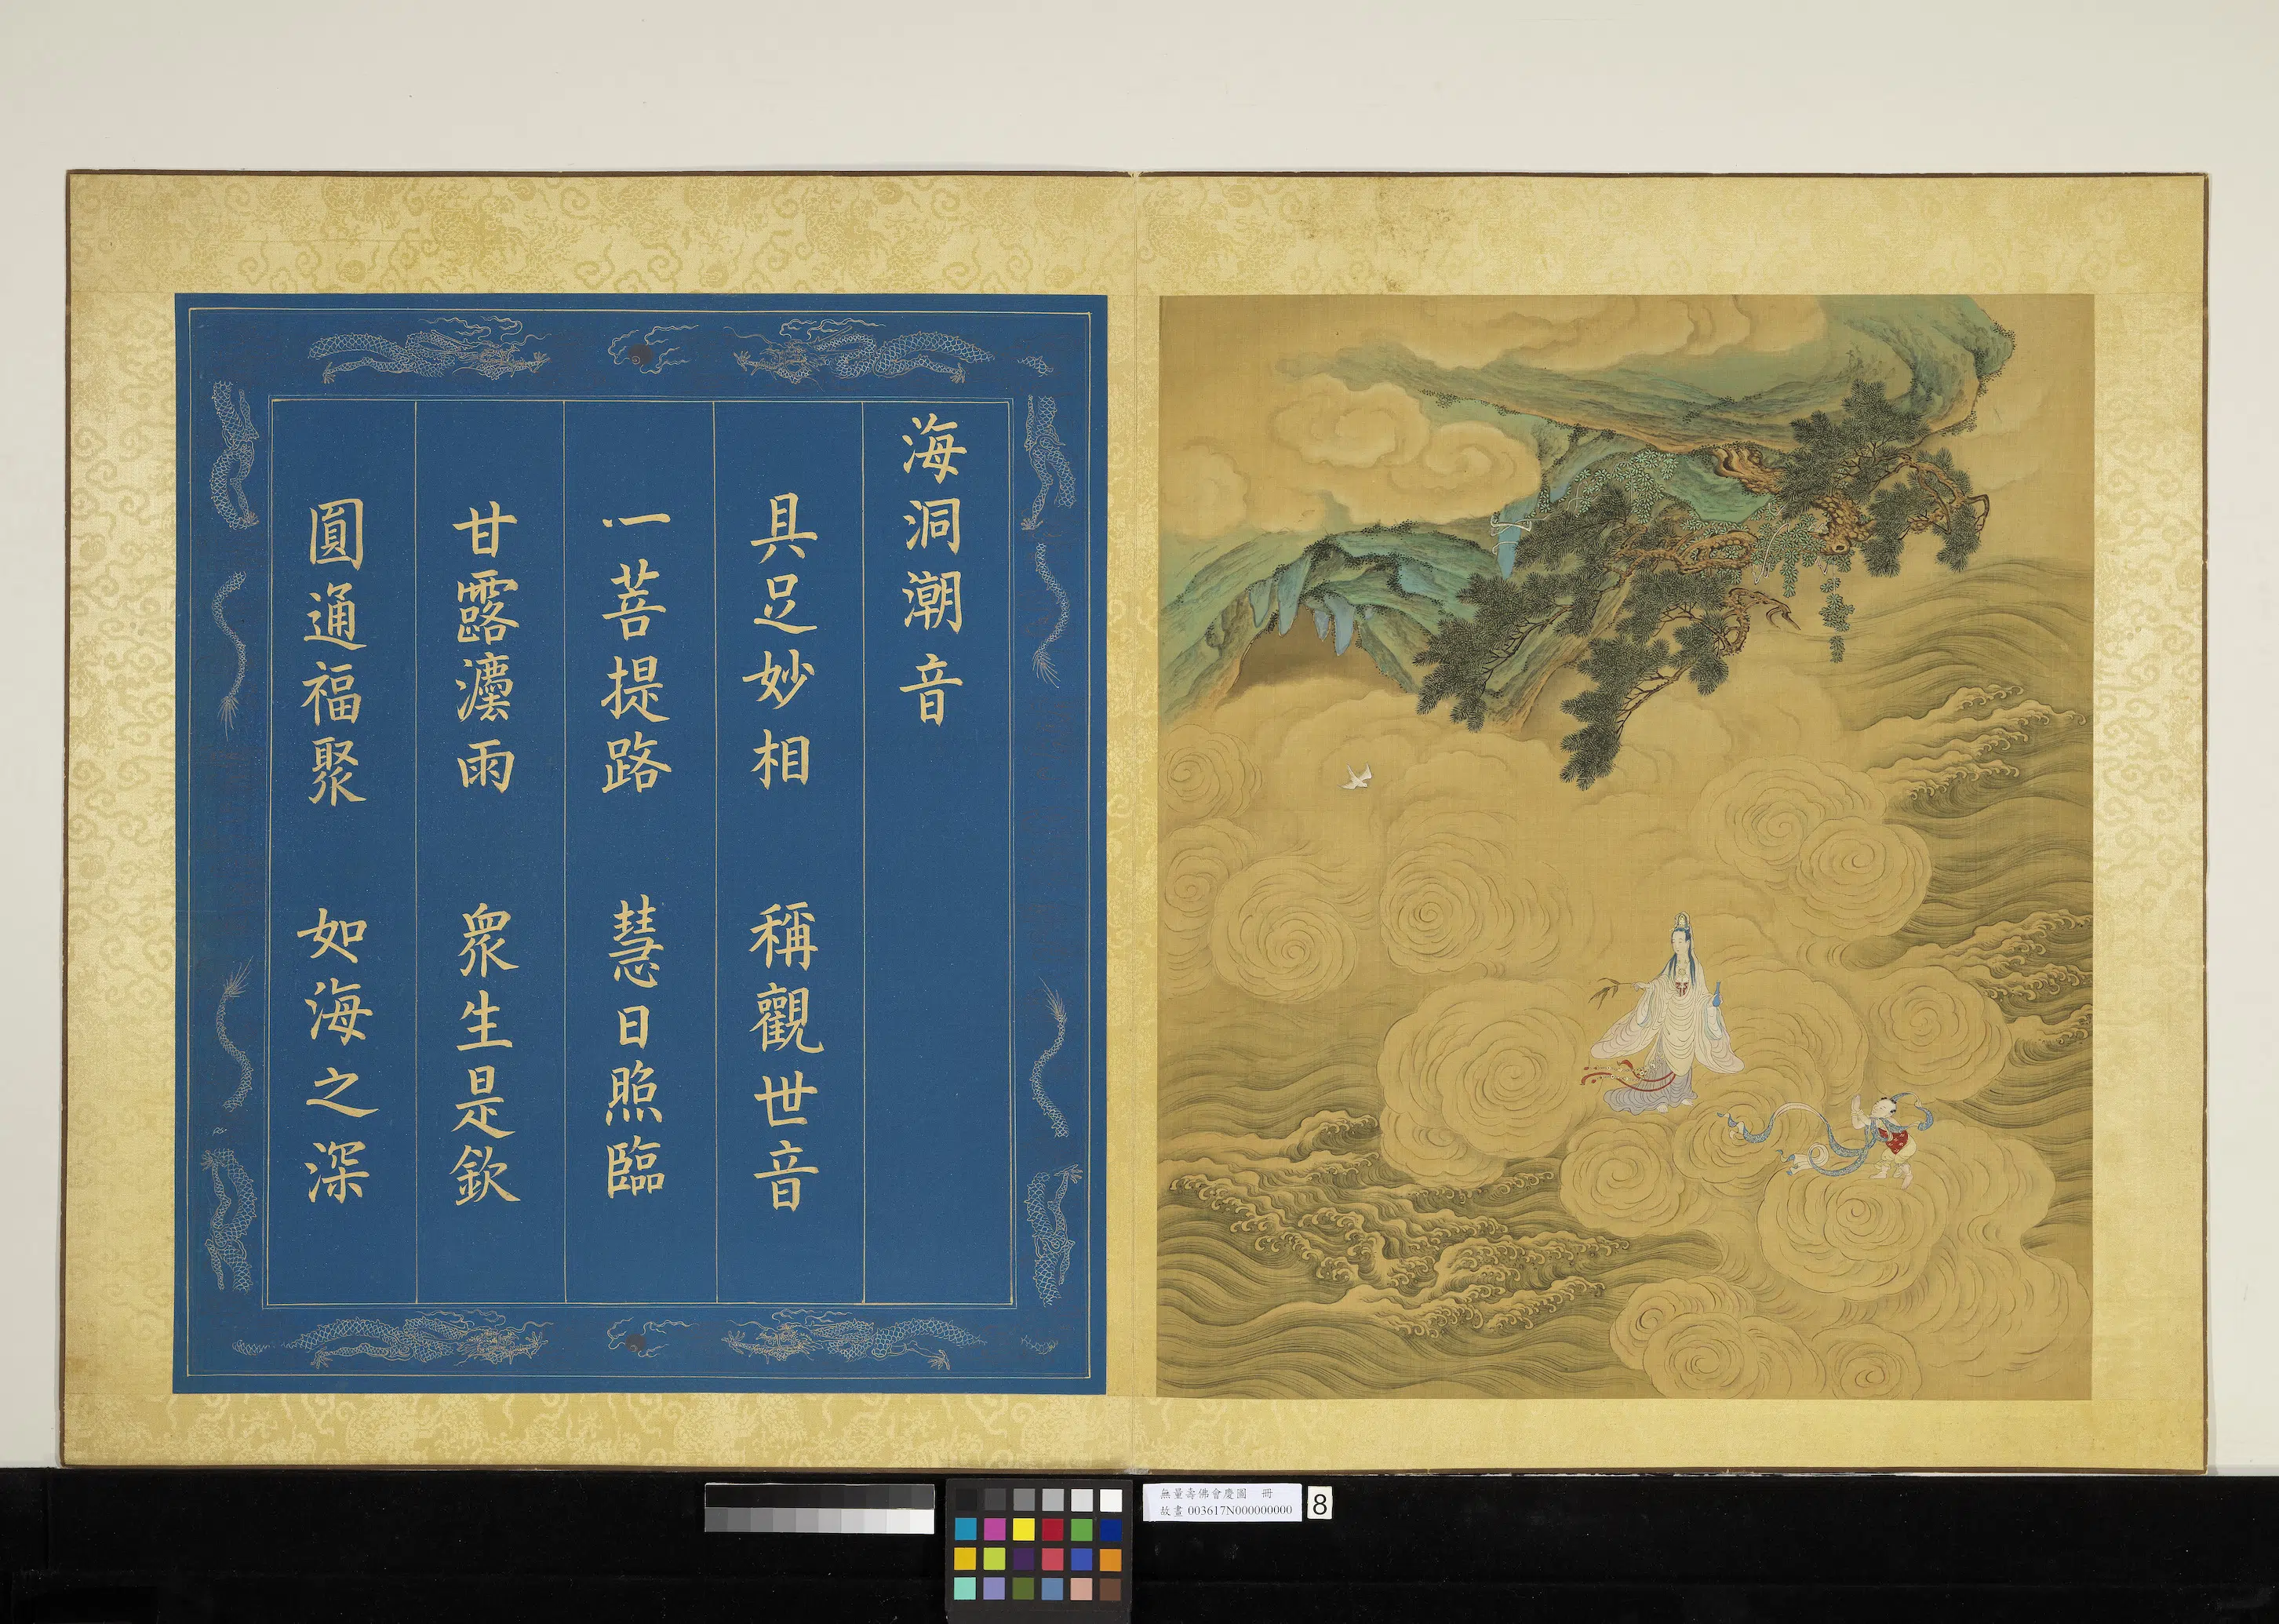 海洞潮音
具足妙相 稱觀世音
一菩提路 慧日照臨
甘露灋雨 眾生是欽
圓通福聚 如海之深
無量壽佛會慶圖 冊
故畫 003617N000000000
8